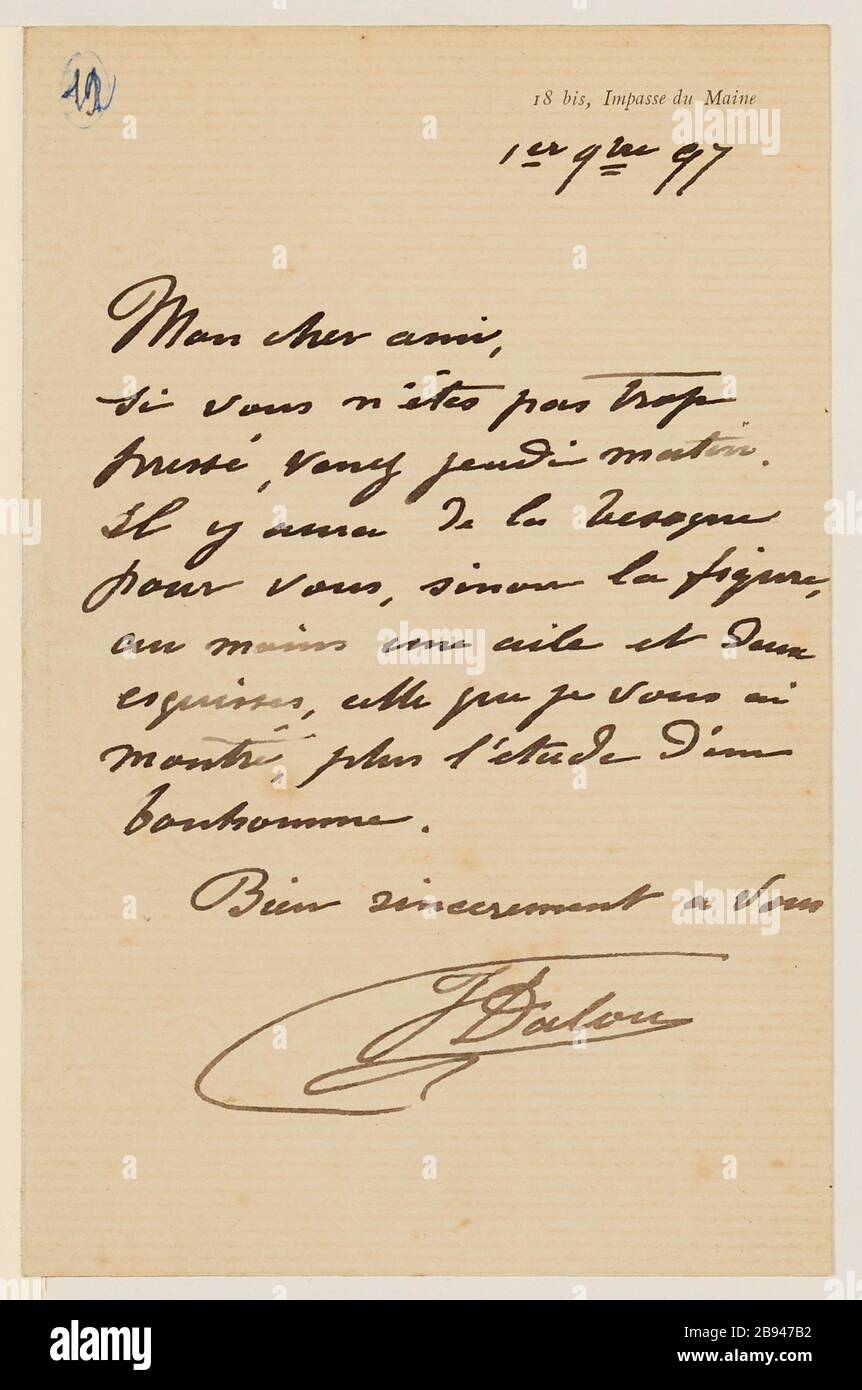 12
18 bis, Impasse du Maine
1er 9bre 97
Mon cher ami,
Si vous n'êtes pas trop
pressé, venez jeudi matin.
Il y aura de la besogne
pour vous, sinon la figure,
au moins une aile et deux
esquisses, celle que je vous ai
montré, plus l'étude d'un
bonhomme.
Bien sincerement a vous
J Dalou
alamy
Image ID: 2B947B2
www.alamy.com